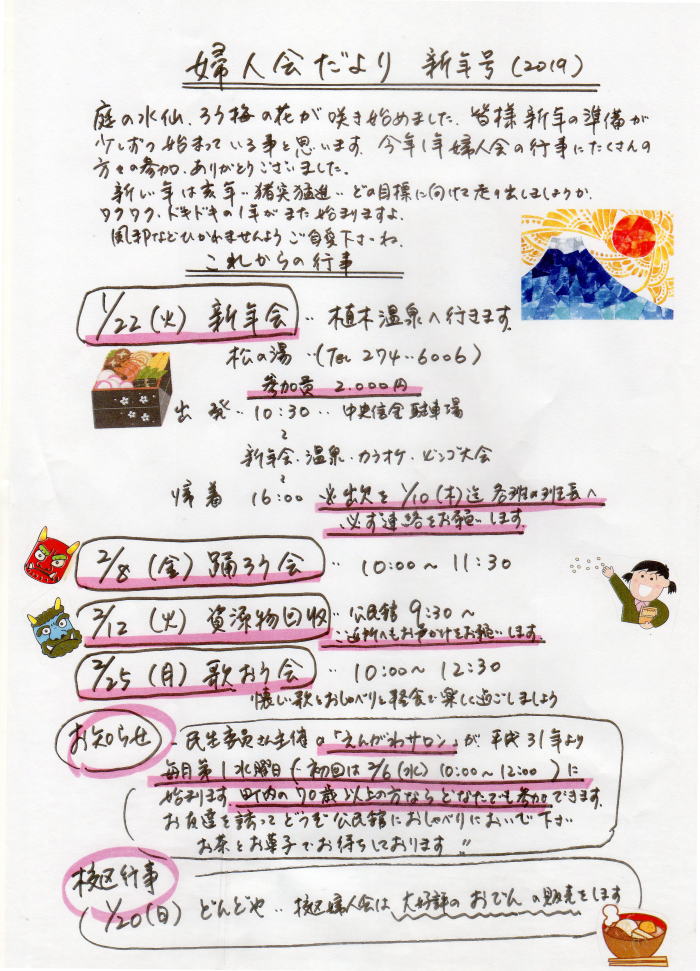 婦人会だより 新年号(2019)
庭の水仙、ろう梅の花が咲き始めました。皆様新年の準備が
少しずつ始まっている事と思います。今年1年婦人会の行事にたくさんの
方々の参加、ありがとうございました。
新しい年は亥年‥猪突猛進‥どの目標に向けて走り出しましょうか。
ワクワク、ドキドキの1年がまた始まりますよ。
風邪などひかれませんようご自愛下さいね。
これからの行事
1/22(火) 新年会 ‥ 植木温泉へ行きます。
松の湯・(Tel 274-6006)
参加費 2.000円
出発‥10:30‥中央信金駐車場
〜
新年会・温泉・カラオケ・ビンゴ大会
〜
帰着 16:00 ※出欠を1/10(木)迄各班の班長へ
必ず連絡をお願いします。
2/8 (金) 踊ろう会 ‥ 10:00〜11:30
2/12 (火) 資源物回収 ‥ 公民館 9:30〜
ご近所へもお声かけをお願いします。
2/25 (月) 歌おう会 ‥ 10:00〜12:30
懐しい歌とおしゃべりと軽食で楽しく過ごしましょう
お知らせ ‥ 民生委員さん主催の「えんがわサロン」が、平成31年より
毎月第1水曜日(初回は2/6(水) 10:00〜12:00)に
始まります。町内の70歳以上の方ならどなたでも参加できます。
お友達を誘ってどうぞ公民館におしゃべりにおいで下さい
お茶とお菓子でお待ちしております!!
校区行事
1/20(日) どんどや‥校区婦人会は大好評のおでんの販売をします